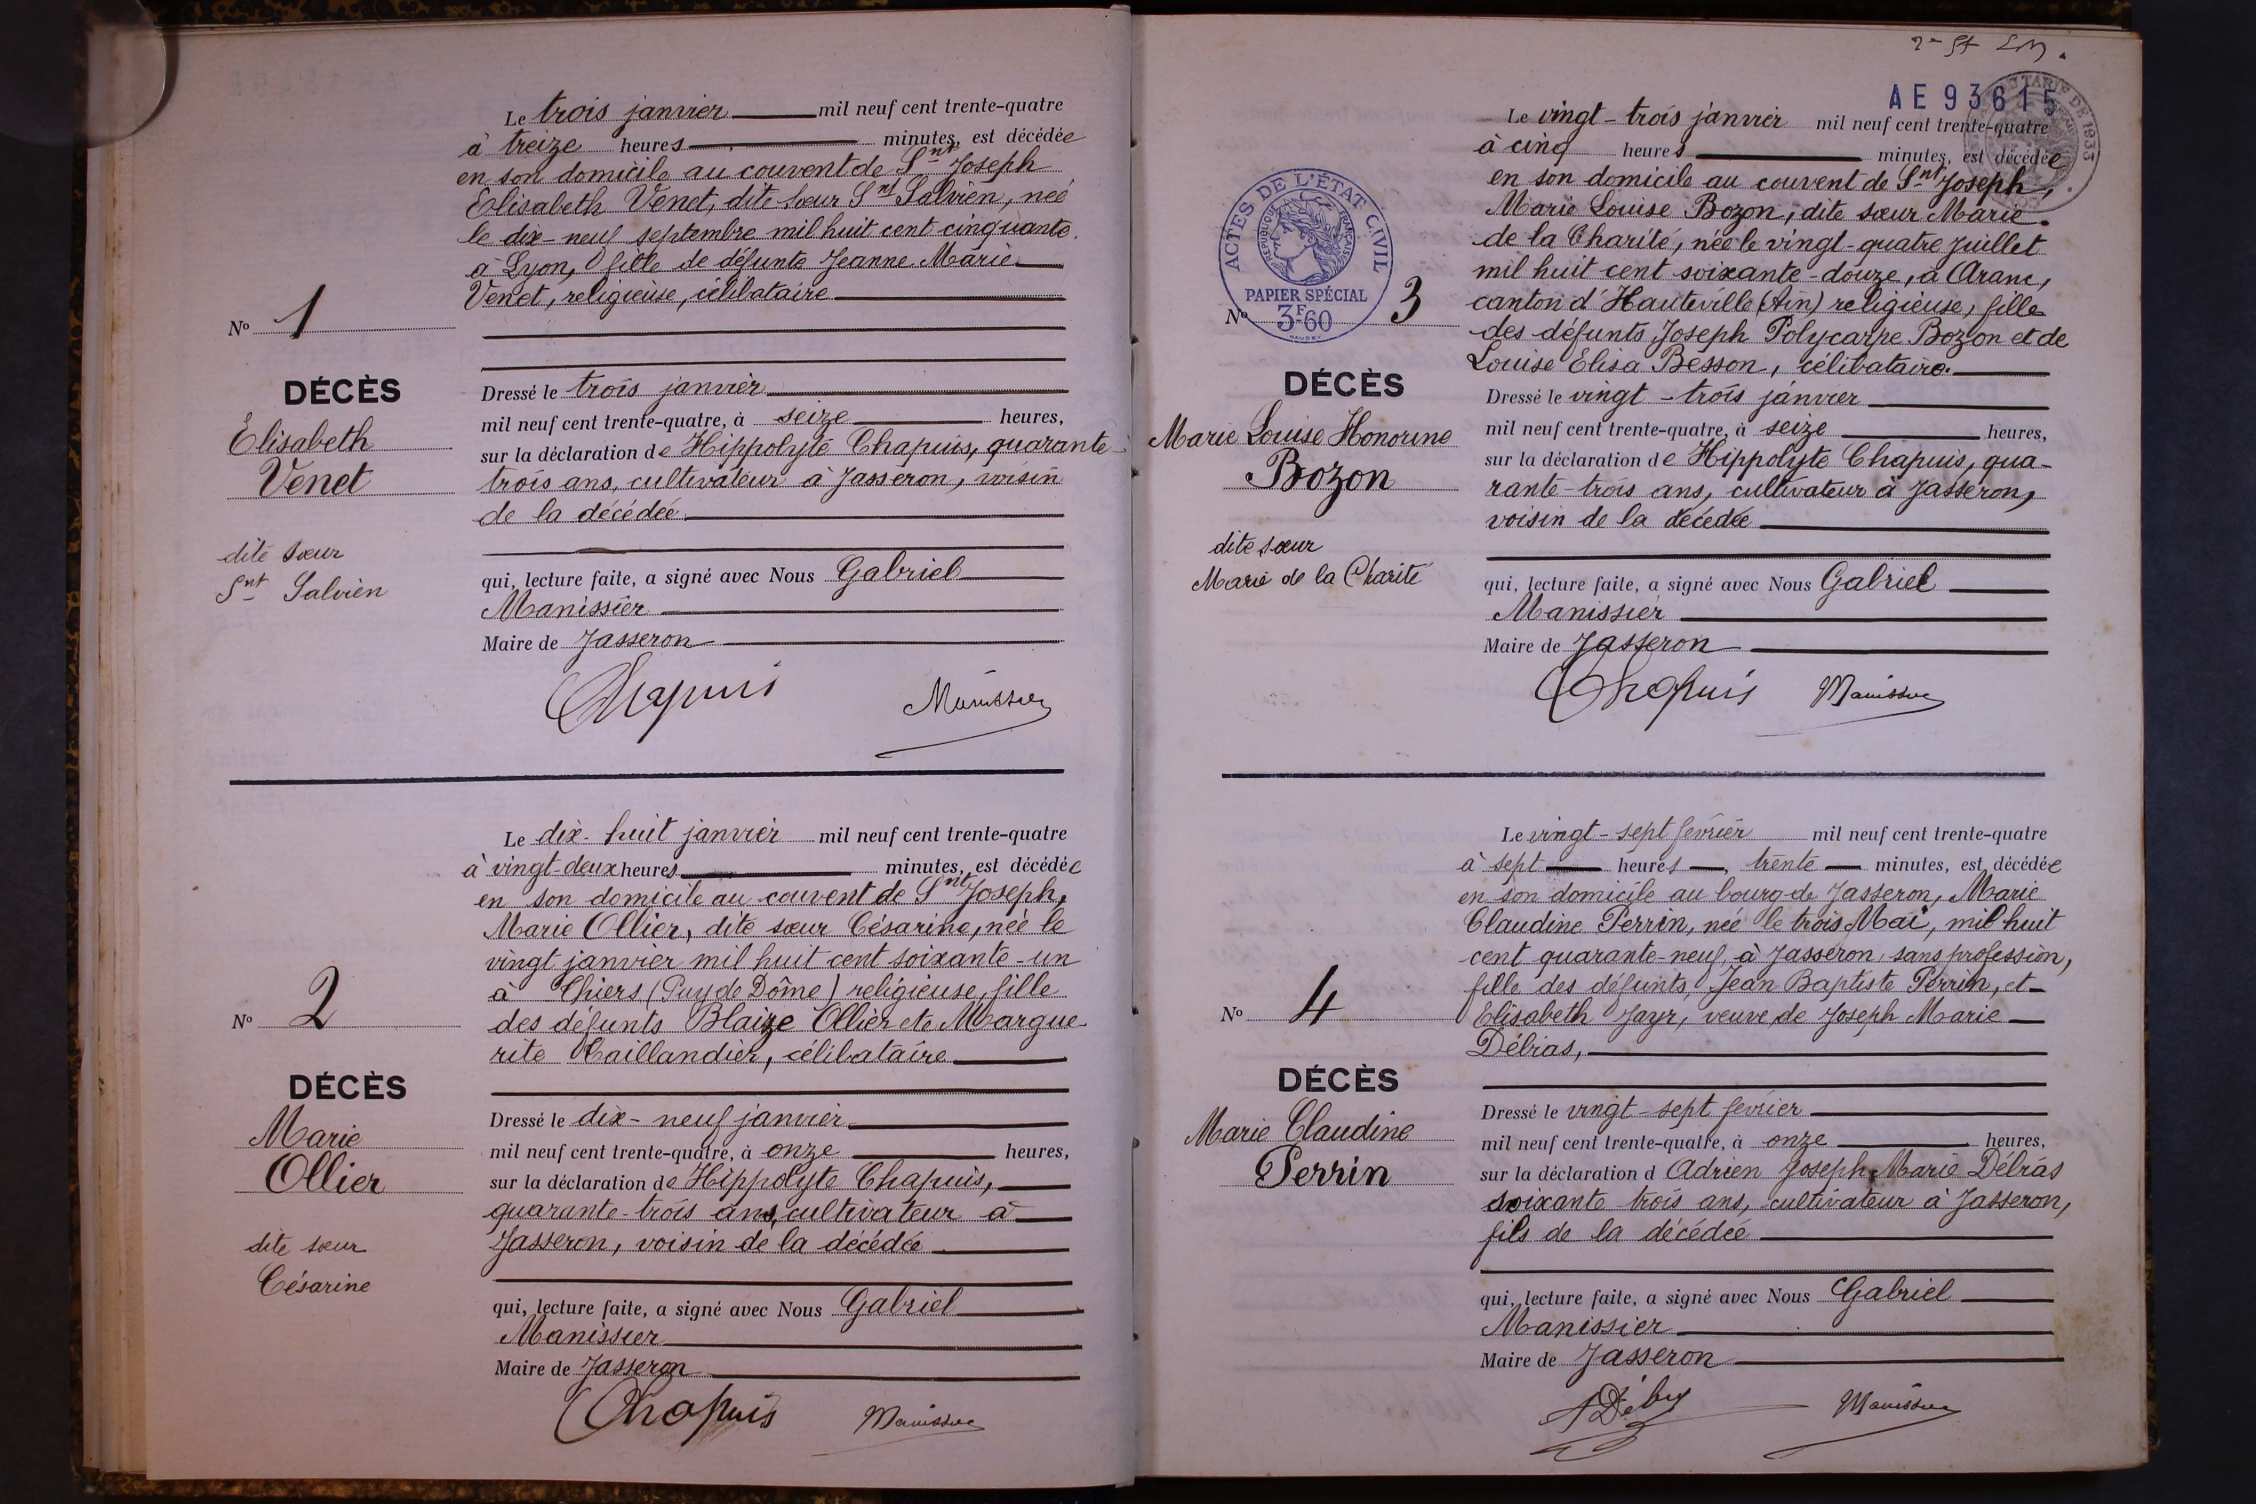 Le trois janvier mil neuf cent trente-quatre
à treize heures minutes, est décédée
en son domicile au couvent de Snt Joseph
Elisabeth Venet, dite sœur Snt Salvien, née
le dix-neuf septembre mil huit cent cinquante
à Lyon, fille de défunte Jeanne Marie
Venet, religieuse, célibataire
No 1
DÉCÈS
Elisabeth
Venet
dite sœur
Snt Salvien
Dressé le trois janvier
mil neuf cent trente-quatre, à seize heures,
sur la déclaration de Hippolyte Chapuis, quarante-
trois ans, cultivateur à Jasseron, voisin
de la décédée
qui, lecture faite, a signé avec Nous Gabriel
Manissier
Maire de Jasseron
Chapuis Manissier
Le dix-huit janvier mil neuf cent trente-quatre
à vingt-deux heures minutes, est décédée
en son domicile au couvent de Snt Joseph,
Marie Ollier, dite sœur Césarine, née le
vingt janvier mil huit cent soixante-un
à Thiers (Puy de Dôme) religieuse, fille
des défunts Blaize Ollier et de Margue
rite Taillandier, célibataire
No 2
DÉCÈS
Marie
Ollier
dite sœur
Césarine
Dressé le dix-neuf janvier
mil neuf cent trente-quatre, à onze heures,
sur la déclaration de Hippolyte Chapuis,
quarante-trois ans, cultivateur à
Jasseron, voisin de la décédée
qui, lecture faite, a signé avec Nous Gabriel
Manissier
Maire de Jasseron
Chapuis Manissier
AE 93615
TARIF DE 1933
Le vingt-trois janvier mil neuf cent trente-quatre
à cinq heures minutes, est décédée
en son domicile au couvent de Snt Joseph,
Marie Louise Bozon, dite sœur Marie
de la Charité, née le vingt-quatre juillet
mil huit cent soixante-douze, à Aranc,
canton d'Hauteville (Ain) religieuse, fille
des défunts Joseph Polycarpe Bozon et de
Louise Elisa Besson, célibataire.
ACTES DE L'ÉTAT CIVIL
REPUBLIQUE FRANÇAISE
PAPIER SPÉCIAL
3F60
No 3
DÉCÈS
Marie Louise Honorine
Bozon
dite sœur
Marie de la Charité
Dressé le vingt-trois janvier
mil neuf cent trente-quatre, à seize heures,
sur la déclaration de Hippolyte Chapuis, qua-
rante-trois ans, cultivateur à Jasseron,
voisin de la décédée
qui, lecture faite, a signé avec Nous Gabriel
Manissier
Maire de Jasseron
Chapuis Manissier
Le vingt-sept février mil neuf cent trente-quatre
à sept heures, trente minutes, est décédée
en son domicile au bourg de Jasseron, Marie
Claudine Perrin, née le trois Mai, mil huit
cent quarante-neuf, à Jasseron, sans profession,
fille des défunts, Jean Baptiste Perrin, et
Elisabeth Jayr, veuve de Joseph Marie
Débias,
No 4
DÉCÈS
Marie Claudine
Perrin
Dressé le vingt-sept février
mil neuf cent trente-quatre, à onze heures,
sur la déclaration d Adrien Joseph Marie Débias
soixante trois ans, cultivateur à Jasseron,
fils de la décédée
qui, lecture faite, a signé avec Nous Gabriel
Manissier
Maire de Jasseron
Manissier